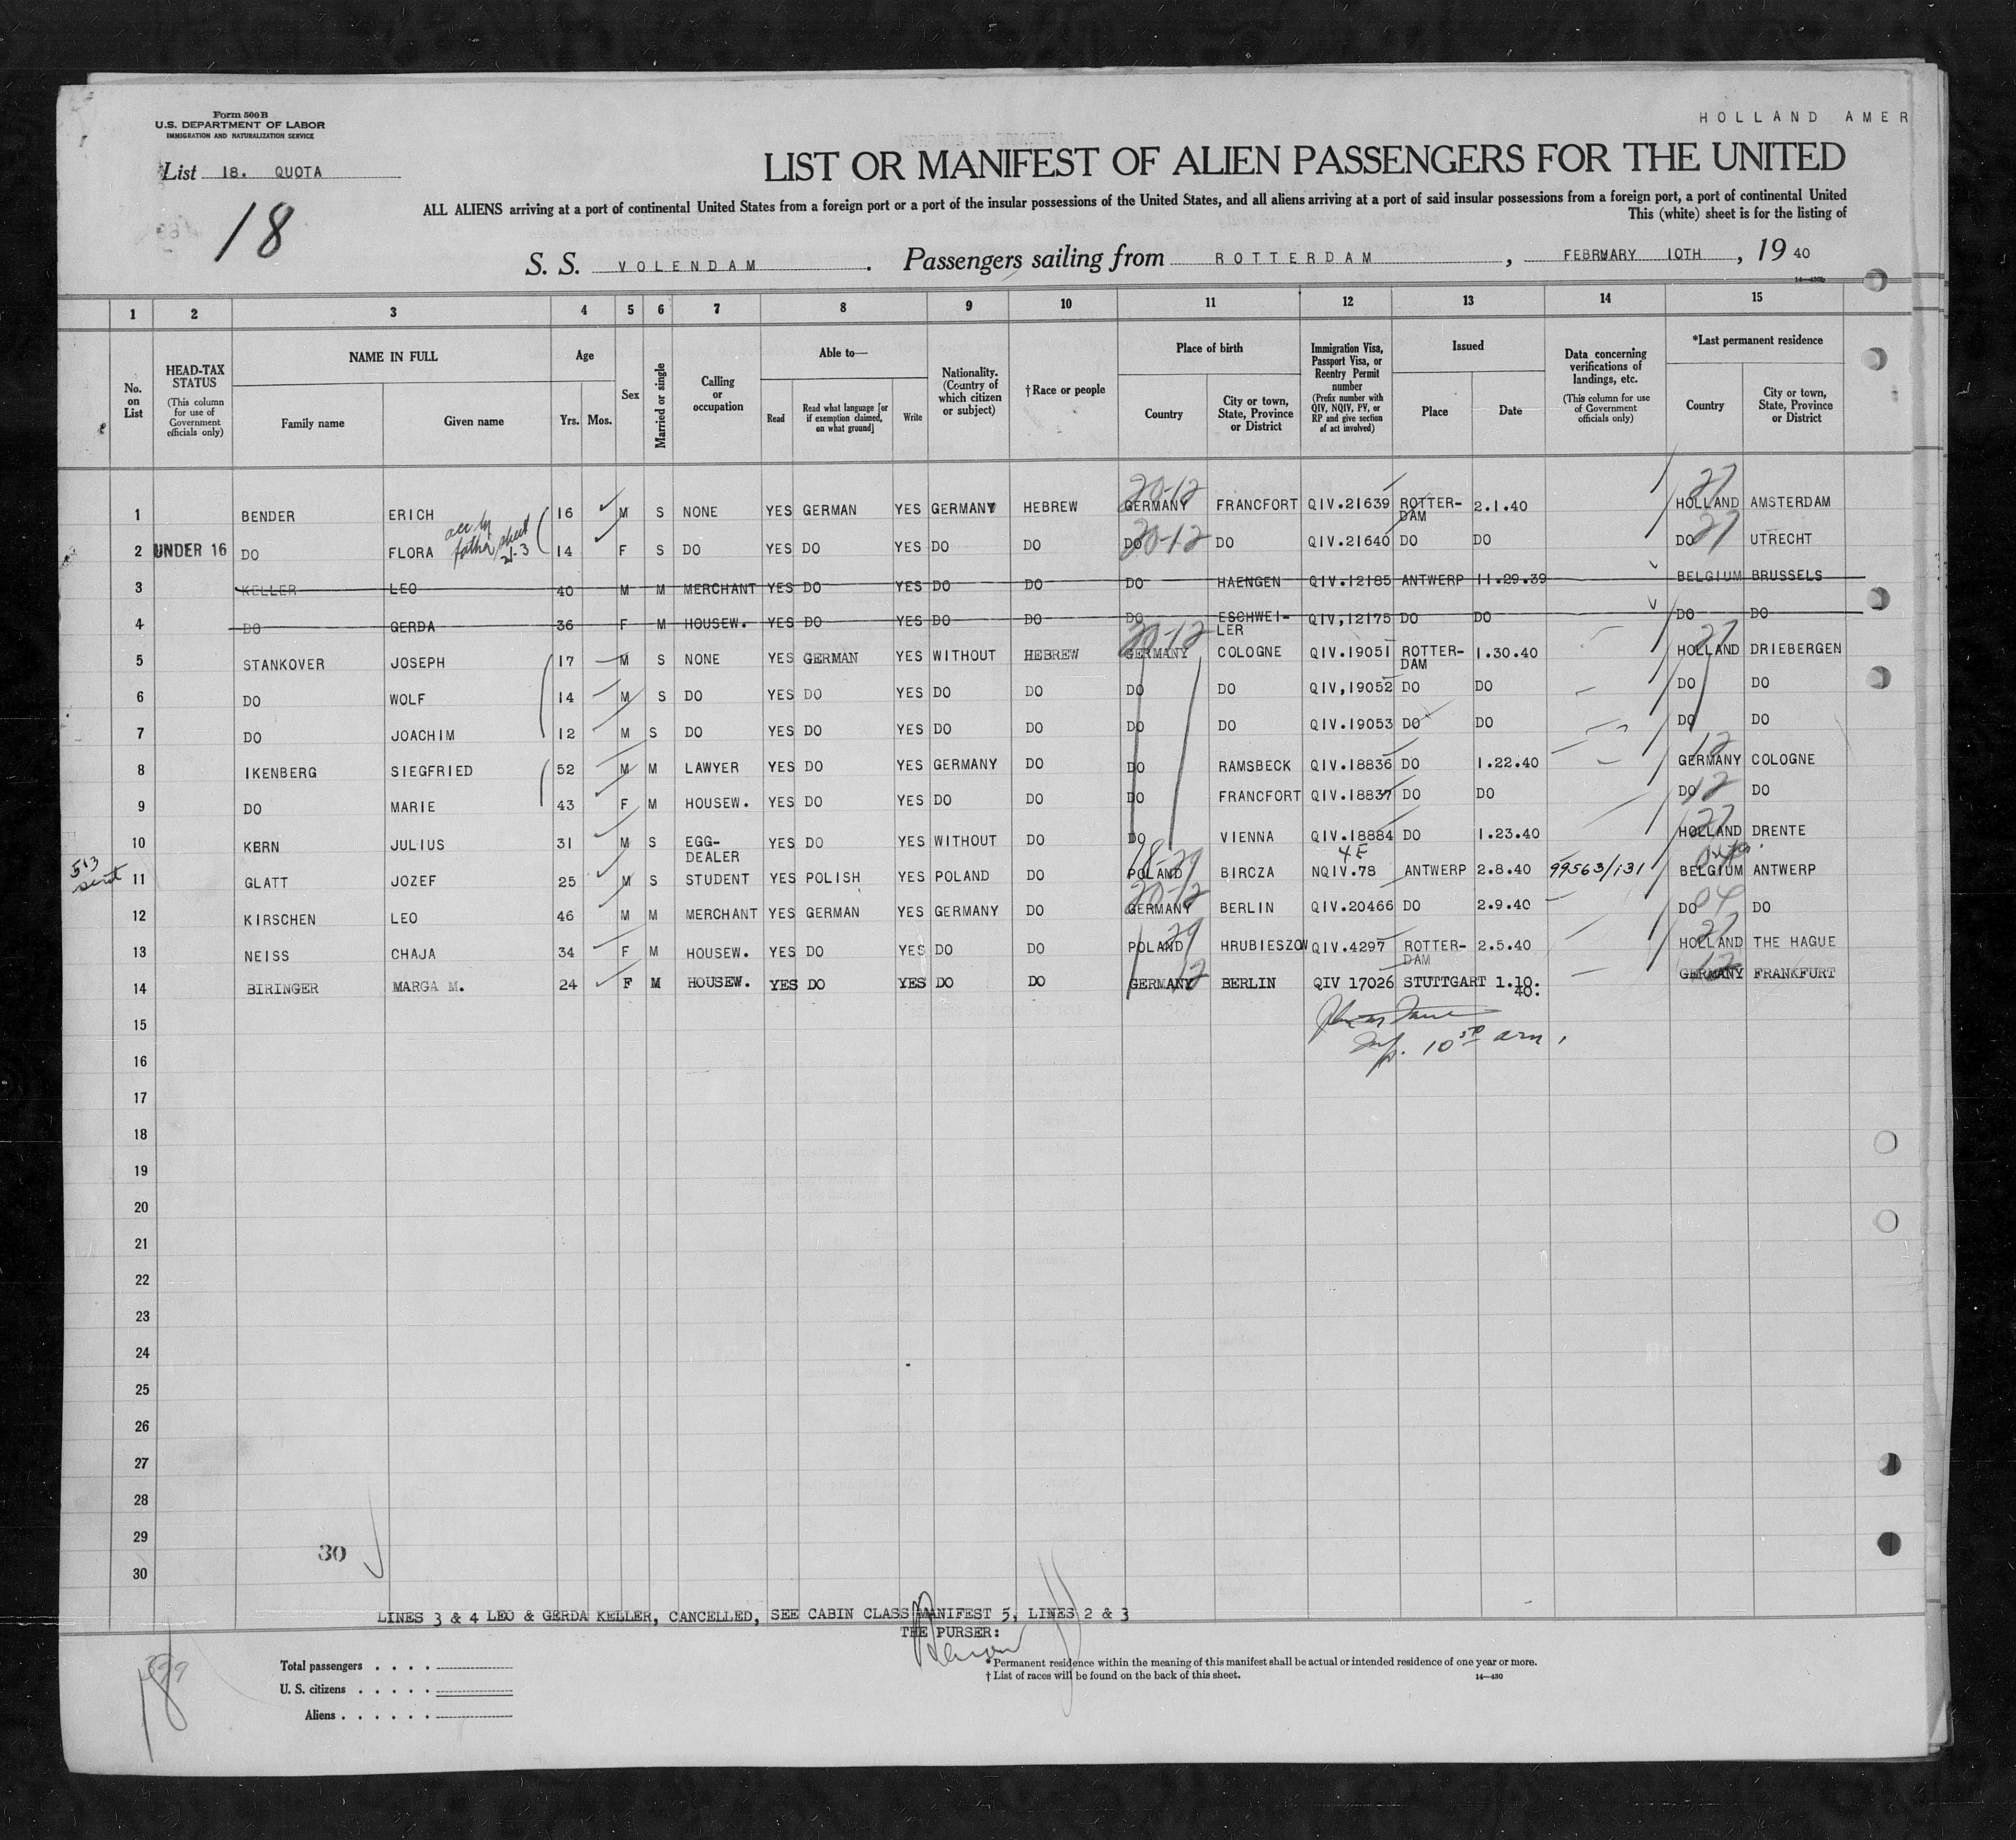 Form 500B
U.S. DEPARTMENT OF LABOR
IMMIGRATION AND NATURALIZATION SERVICE
HOLLAND AMER
List 18. QUOTA
18
LIST OR MANIFEST OF ALIEN PASSENGERS FOR THE UNITED
ALL ALIENS arriving at a port of continental United States from a foreign port or a port of the insular possessions of the United States, and all aliens arriving at a port of said insular possessions from a foreign port, a port of continental United
This (white) sheet is for the listing of
S. S. VOLENDAM . Passengers sailing from ROTTERDAM , FEBRUARY 10TH , 19 40
14—430b
1 2 3 4 5 6 7 8 9 10 11 12 13 14 15
No. on List
HEAD-TAX STATUS (This column for use of Government officials only)
NAME IN FULL
Family name Given name
Age
Yrs. Mos.
Sex
Married or single
Calling or occupation
Able to—
Read Read what language [or if exemption claimed, on what ground] Write
Nationality. (Country of which citizen or subject)
†Race or people
Place of birth
Country City or town, State, Province or District
Immigration Visa, Passport Visa, or Reentry Permit number (Prefix number with QIV, NQIV, PV, or RP and give section of act involved)
Issued
Place Date
Data concerning verifications of landings, etc. (This column for use of Government officials only)
*Last permanent residence
Country City or town, State, Province or District
20-12 27
1 BENDER ERICH 16 M S NONE YES GERMAN YES GERMANY HEBREW GERMANY FRANCFORT QIV.21639 ROTTER-DAM 2.1.40 HOLLAND AMSTERDAM
acc by father sheet 21-3
20-12 27
2 UNDER 16 DO FLORA 14 F S DO YES DO YES DO DO DO DO QIV.21640 DO DO DO UTRECHT
3 KELLER LEO 40 M M MERCHANT YES DO YES DO DO DO HAENGEN QIV.12185 ANTWERP 11.29.39 BELGIUM BRUSSELS
4 DO GERDA 36 F M HOUSEW. YES DO YES DO DO DO ESCHWEI-LER QIV,12175 DO DO DO DO
20-12 27
5 STANKOVER JOSEPH 17 M S NONE YES GERMAN YES WITHOUT HEBREW GERMANY COLOGNE QIV.19051 ROTTER-DAM 1.30.40 HOLLAND DRIEBERGEN
6 DO WOLF 14 M S DO YES DO YES DO DO DO DO QIV,19052 DO DO DO DO
7 DO JOACHIM 12 M S DO YES DO YES DO DO DO DO QIV.19053 DO DO DO DO
12
8 IKENBERG SIEGFRIED 52 M M LAWYER YES DO YES GERMANY DO DO RAMSBECK QIV.18836 DO 1.22.40 GERMANY COLOGNE
12
9 DO MARIE 43 F M HOUSEW. YES DO YES DO DO DO FRANCFORT QIV.18837 DO DO DO DO
27
10 KERN JULIUS 31 M S EGG-DEALER YES DO YES WITHOUT DO DO VIENNA QIV.18884 DO 1.23.40 HOLLAND DRENTE
513 sent 18-29 4E
11 GLATT JOZEF 25 M S STUDENT YES POLISH YES POLAND DO POLAND BIRCZA NQIV.78 ANTWERP 2.8.40 99563/131 BELGIUM ANTWERP
20-12 04
12 KIRSCHEN LEO 46 M M MERCHANT YES GERMAN YES GERMANY DO GERMANY BERLIN QIV.20466 DO 2.9.40 DO DO
29 27
13 NEISS CHAJA 34 F M HOUSEW. YES DO YES DO DO POLAND HRUBIESZOW QIV.4297 ROTTER-DAM 2.5.40 HOLLAND THE HAGUE
12 12
14 BIRINGER MARGA M. 24 F M HOUSEW. YES DO YES DO DO GERMANY BERLIN QIV 17026 STUTTGART 1.10.40. GERMANY FRANKFURT
15
Insp. 10 50 am,
16
17
18
19
20
21
22
23
24
25
26
27
28
29
30
30
LINES 3 & 4 LEO & GERDA KELLER, CANCELLED, SEE CABIN CLASS MANIFEST 5, LINES 2 & 3
THE PURSER:
Total passengers
U. S. citizens
Aliens
*Permanent residence within the meaning of this manifest shall be actual or intended residence of one year or more.
†List of races will be found on the back of this sheet.
14—430